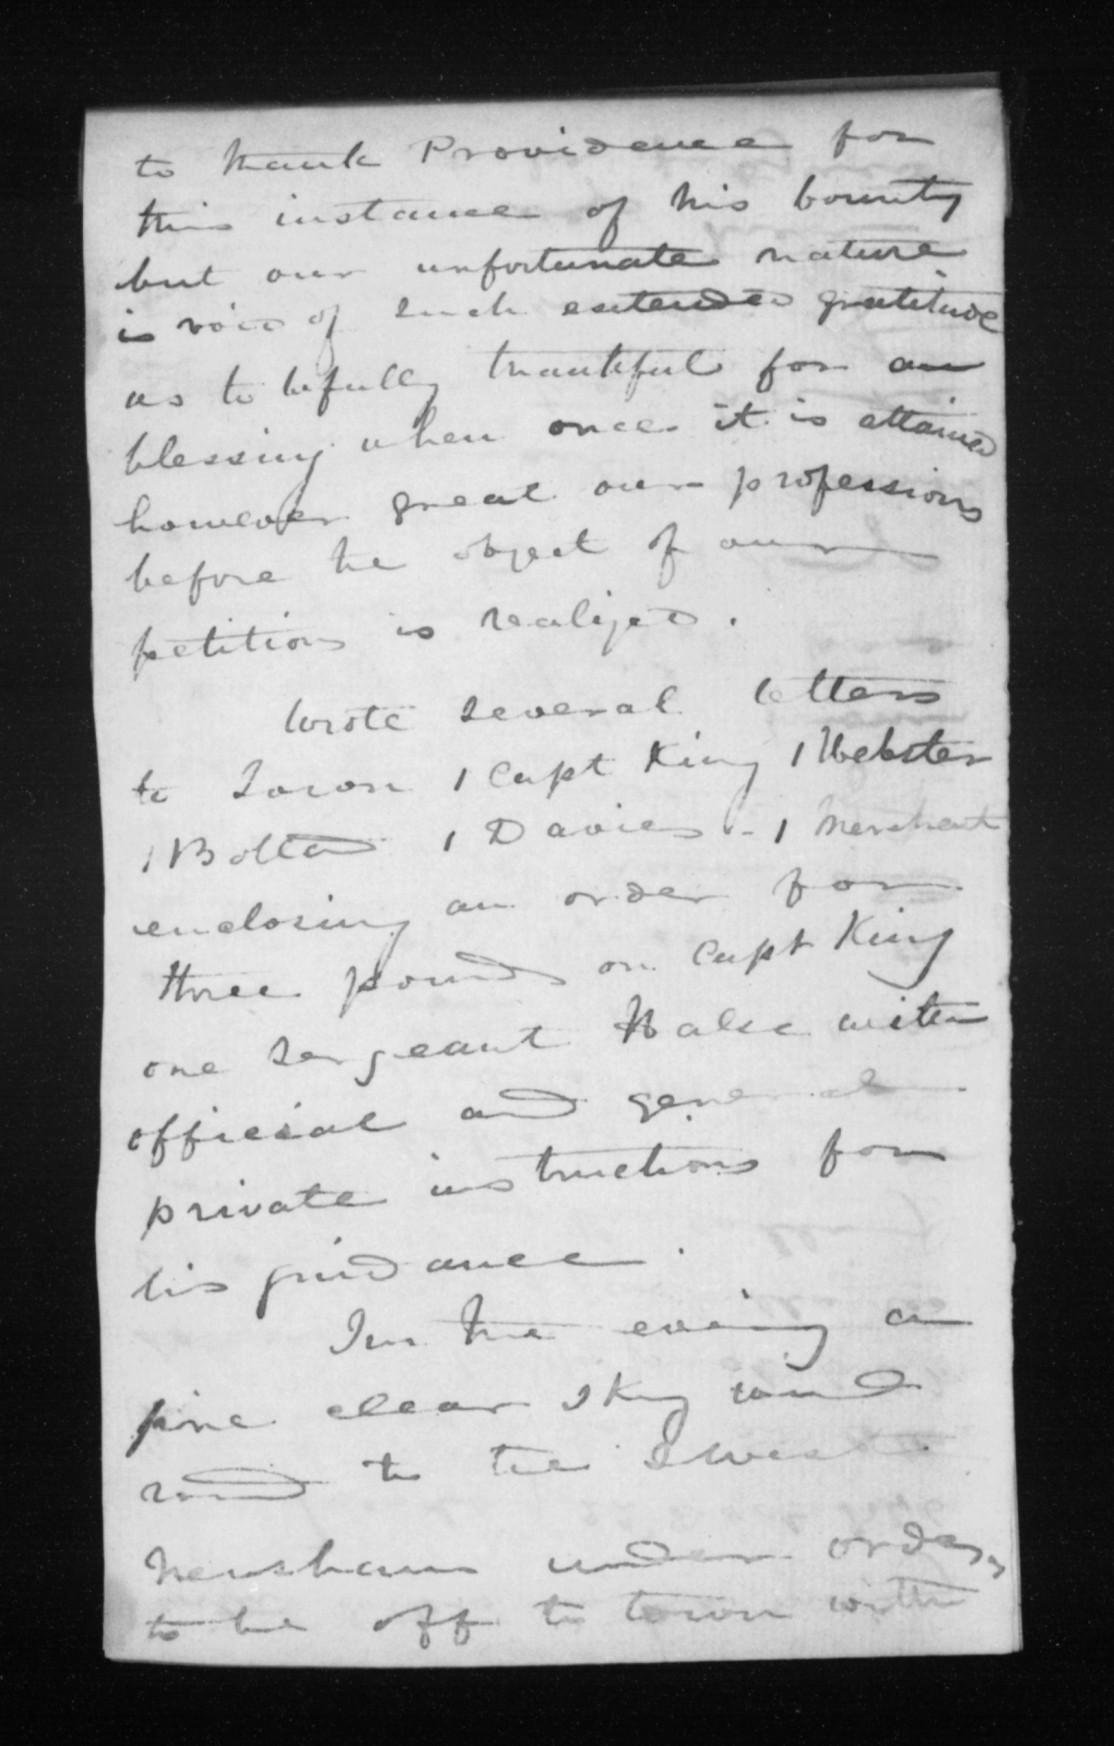 to thank Providence for
this instance of his bounty
but our unfortunate nature
is void of such extended gratitude
as to be fully thankful for an
blessing when once it is attained
however great our professions
before the object of our
petitions is realized.
Wrote several letters
to Town 1 Capt King 1 Webster
1 Bolton 1 Davies - 1
enclosing an order for
three pounds on Capt King
one Sergeant with
official and general
private instructions for
his guidance.
In the evening a
fine clear sky wind
round to the S West
under orders
to be off to town with